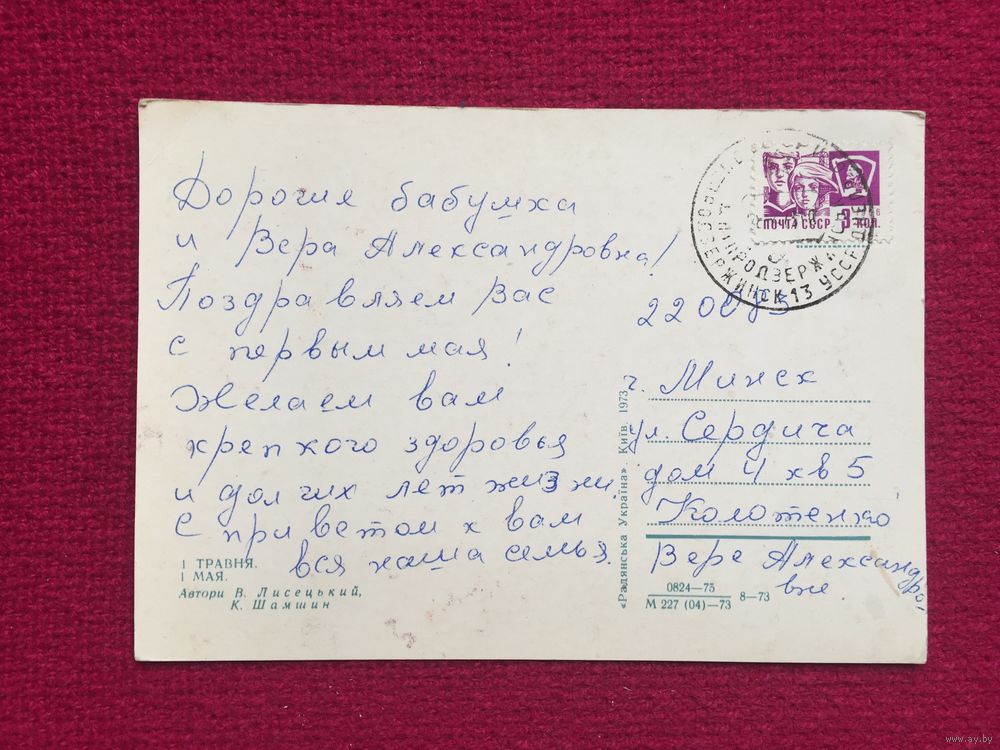 Дорогие бабушка
и Вера Александровна!
Поздравляем Вас
с первым мая!
Желаем вам
крепкого здоровья
и долгих лет жизни.
С приветом к вам
вся наша семья.
1 ТРАВНЯ.
1 МАЯ.
Автори В. Лисецький,
К. Шамшин
«Радянська Україна». Київ. 1973.
ПОЧТА СССР 3 КОП.
ДНЕПРОДЗЕРЖИНСК-13 УССР
г. Минск
ул. Сердича
дом 4 кв 5
Колотенко
Вере Александро-
вне
0824—75
М 227 (04)—73
8—73
www.ay.by